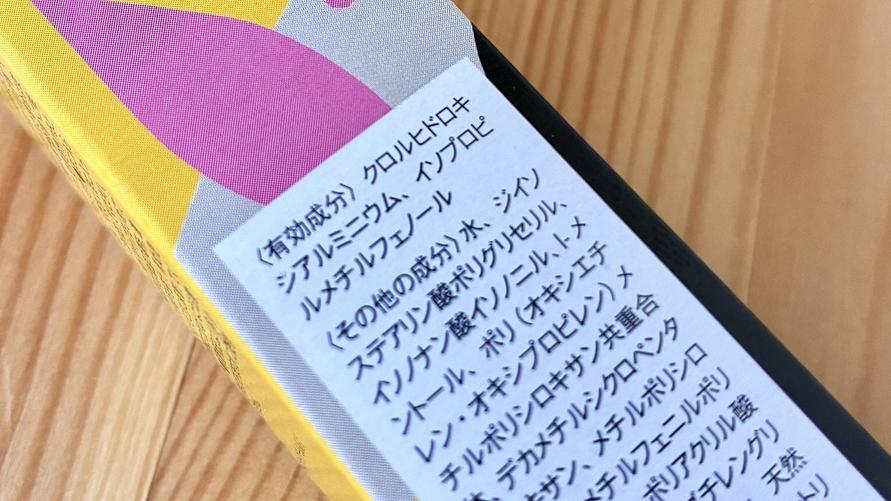 〈有効成分〉クロルヒドロキ
シアルミニウム、イソプロピ
ルメチルフェノール
〈その他の成分〉水、ジイソ
ステアリン酸ポリグリセリル、
イソノナン酸イソノニル、l-メ
ントール、ポリ(オキシエチ
レン・オキシプロピレン)メ
チルポリシロキサン共重合
、デカメチルシクロペンタ
キサン、メチルポリシロ
メチルフェニルポリ
ポリアクリル酸
チレングリ
天然